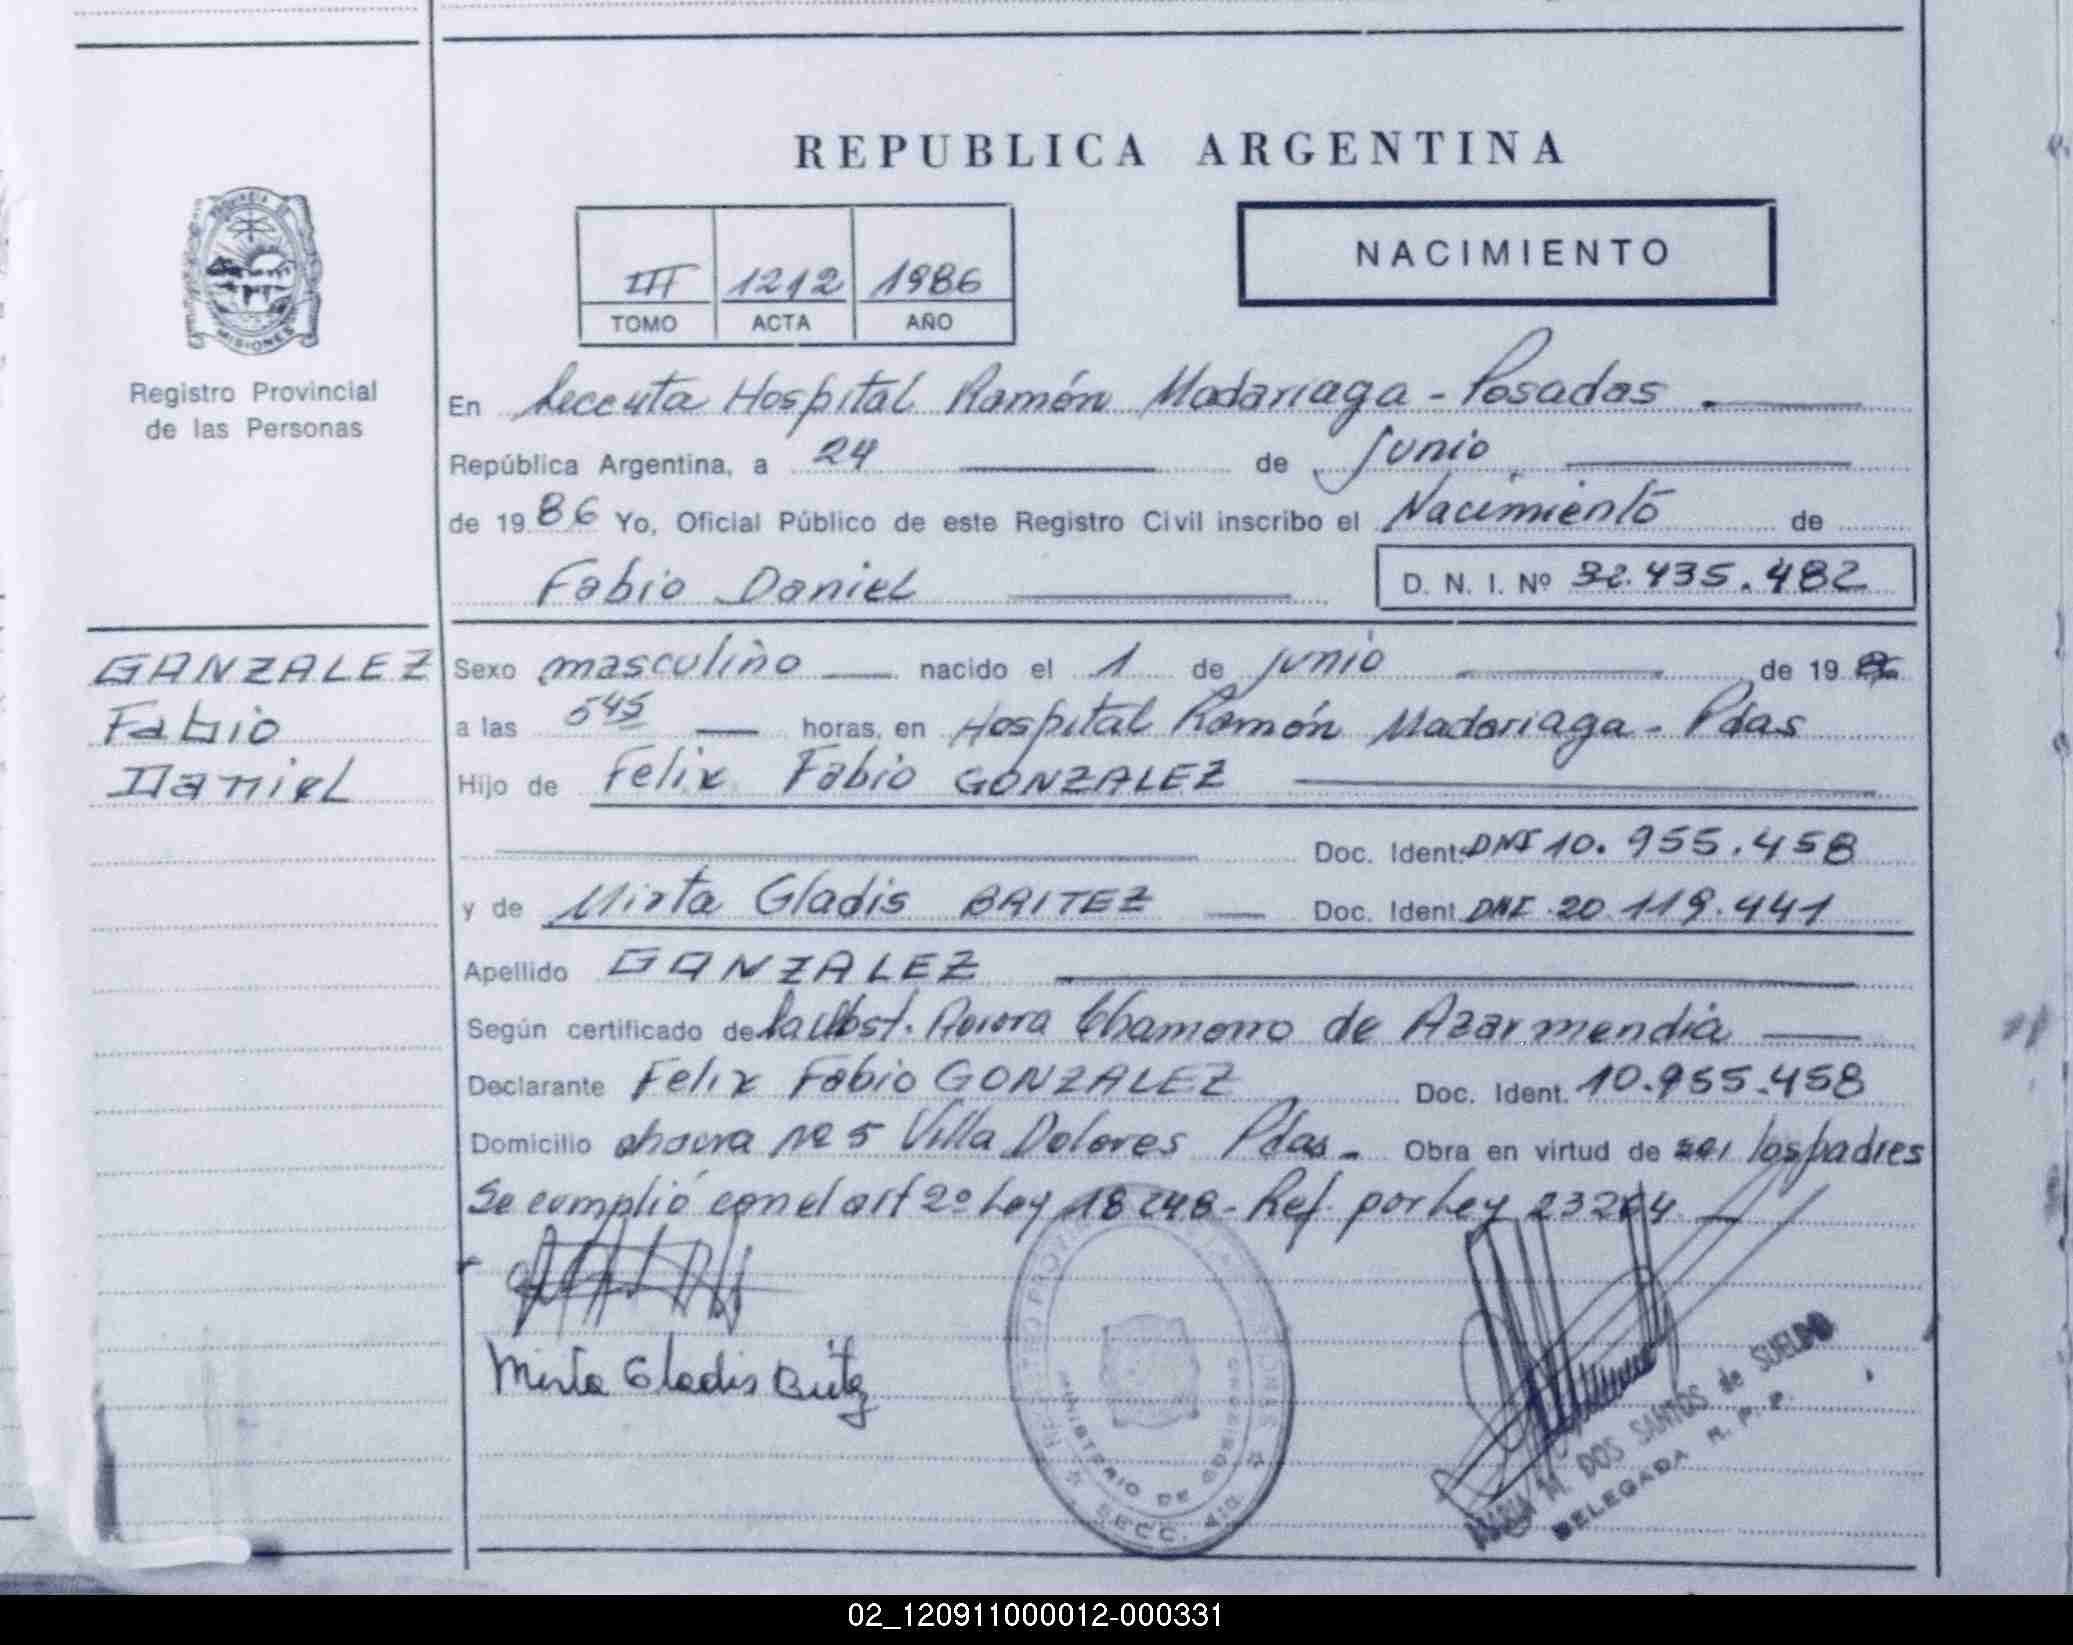 REPUBLICA ARGENTINA
III 1212 1986
TOMO ACTA AÑO
NACIMIENTO
MISIONES
Registro Provincial
de las Personas
En Hospital Ramón Madariaga - Posadas
República Argentina, a 24 de junio
de 1986 Yo, Oficial Público de este Registro Civil inscribo el Nacimiento de
Fabio Daniel D. N. I. Nº 32.435.482
GANZALEZ
Fabio
Daniel
Sexo masculino nacido el 1 de junio de 1986
a las 545 horas, en Hospital Ramón Madariaga - Pdas
Hijo de Felix Fabio GONZALEZ
Doc. Ident. DNI 10.955.458
y de Mirta Gladis BRITEZ Doc. Ident. DNI 20.119.441
Apellido GANZALEZ
Según certificado de la Obst. Aurora Chamorro de Azarmendia
Declarante Felix Fabio GONZALEZ Doc. Ident. 10.955.458
Domicilio chacra Nº 5 Villa Dolores Pdas. Obra en virtud de los padres
Se cumplió con el art 2º Ley 18248 - Ref. por Ley 23264
Mirta Gladis Britez
MINISTERIO DE GOBIERNO
SECC. 4ta.
M. DOS SANTOS de SUELDO
DELEGADA R. P. P.
02_120911000012-000331